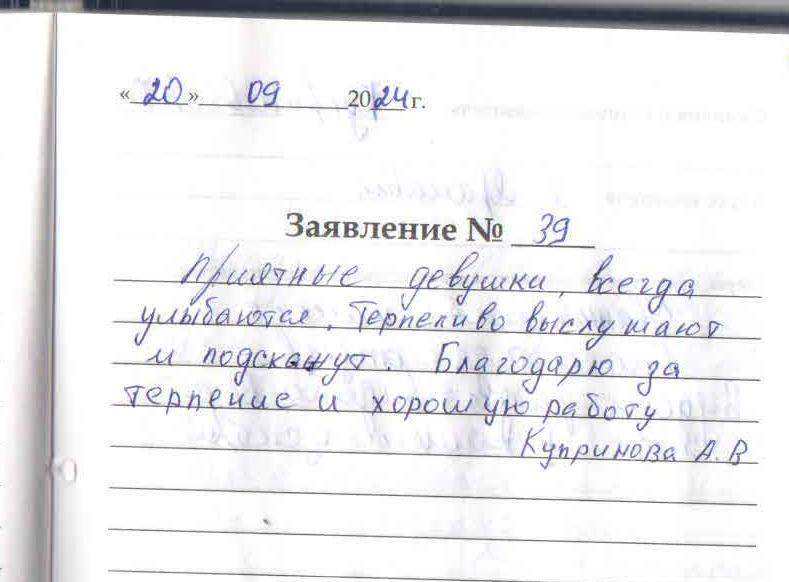 «20» 09 2024 г.
Заявление № 39
Приятные девушки, всегда
улыбаются. Терпеливо выслушают
и подскажут. Благодарю за
терпение и хорошую работу
Купринова А.В